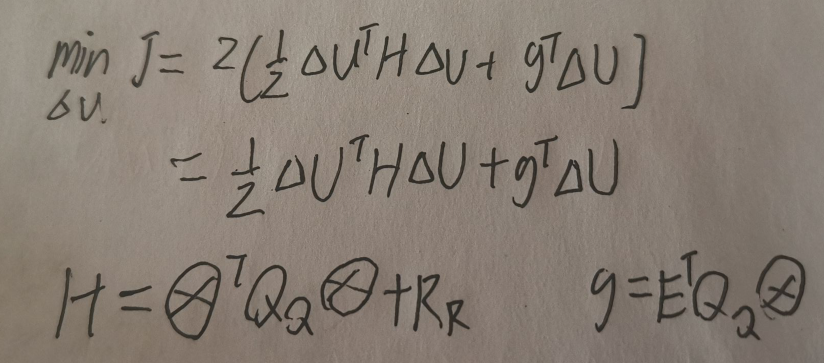 min J = 2(½ ΔUᵀHΔU + gᵀΔU]
ΔU.
= ½ ΔUᵀHΔU + gᵀΔU
H = ⊗ᵀQ_Q⊗ + R_R g = EᵀQ_Q⊗